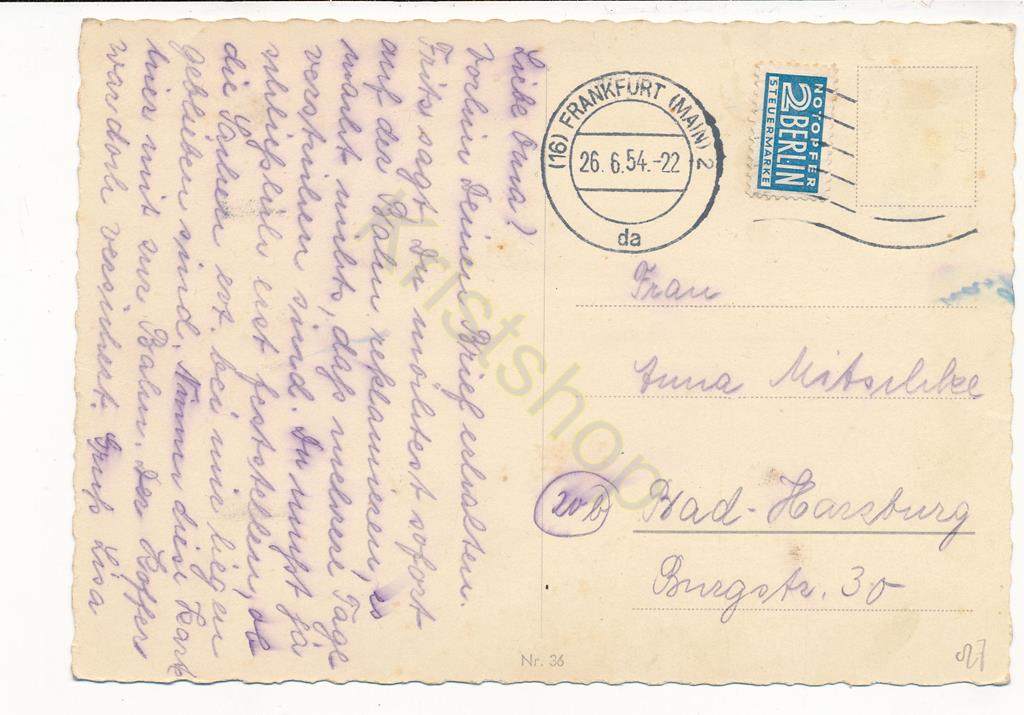 Liebe Oma!
vorhin Deinen Brief erhalten.
Fritz sagt Du möchtest sofort
auf der Bahn reklamieren, es
macht nichts, daß mehrere Tage
verstrichen sind. Du mußt ja
schließlich erst feststellen, ob
die Sachen evt. bei mir liegen
geblieben sind. Nimm diese Karte
hier mit zur Bahn. Der Koffer
war doch versichert. Gruß Lisa
(16) FRANKFURT (MAIN) 2
26. 6. 54.-22
da
NOTOPFER
2 BERLIN
STEUERMARKE
Frau
Anna Mitschke
20b Bad-Harzburg
Burgstr. 30
Nr. 36
Kristshop